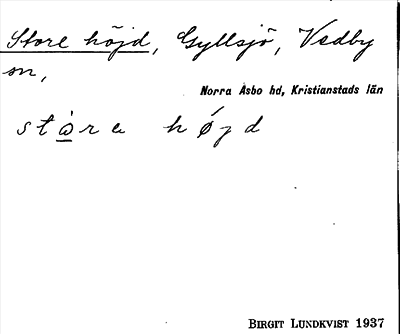 Store höjd, Gyllsjö, Vedby
sn,
Norra Åsbo hd, Kristianstads län
stòra hǿjd
BIRGIT LUNDKVIST 1937